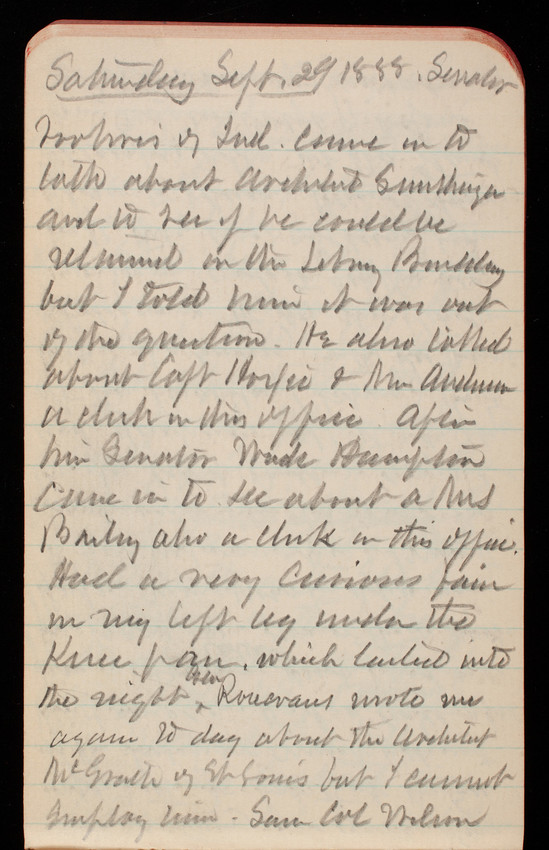 Saturday Sept. 29 1888. Senator
Voorhees of Ind. came in to
talk about Architect Smithmeyer
and to see if he could be
retained on the Library Building
but I told him it was out
of the question. He also talked
about Capt & Mr
a clerk in this office. After
him Senator Wade Hampton
came in to see about a Mrs
Bailey also a clerk in this office.
Had a very curious pain
in my left leg under the
Knee pan, which lasted into
the night. Gen Rosecrans wrote me
again to day about the Architect
McGrath of St Louis but I cannot
employ him - Saw Col Wilson